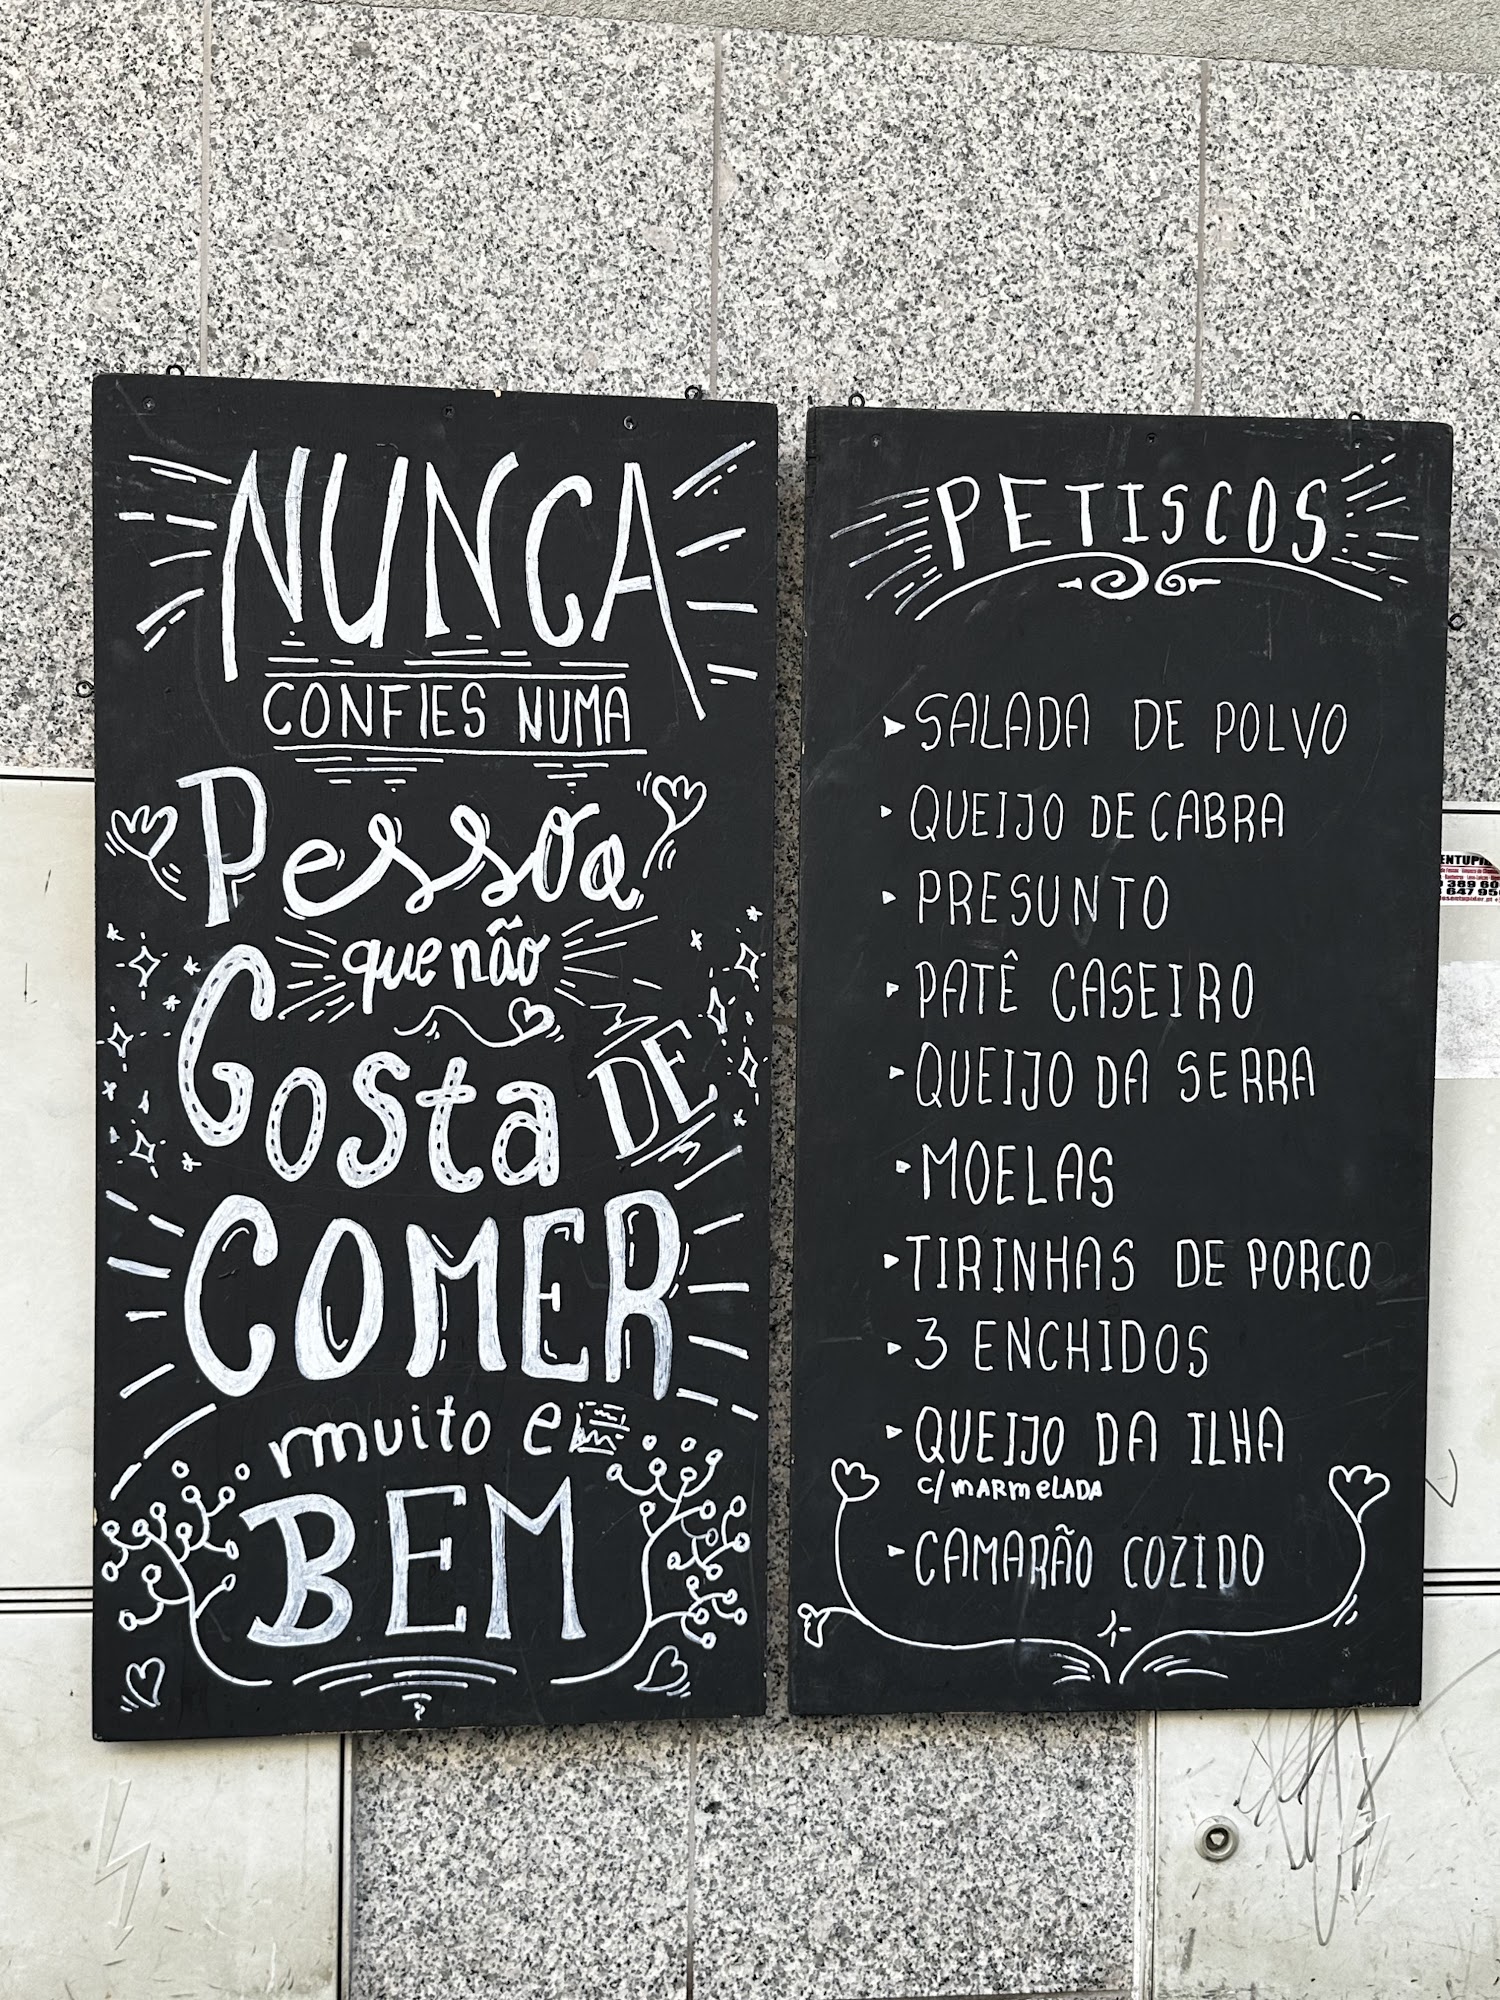 NUNCA
CONFIES NUMA
Pessoa
que não
Gosta DE
COMER
muito e
BEM
PETISCOS
SALADA DE POLVO
QUEIJO DE CABRA
PRESUNTO
PATÊ CASEIRO
QUEIJO DA SERRA
MOELAS
TIRINHAS DE PORCO
3 ENCHIDOS
QUEIJO DA ILHA
c/ MARMELADA
CAMARÃO COZIDO
ENTUPI
389 60
647 95